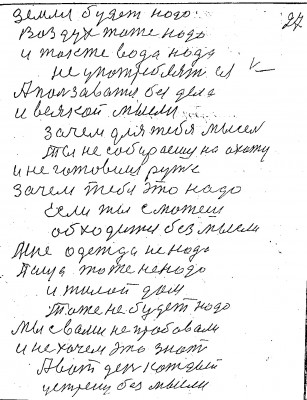 земли будет надо
27
Воздух тоже надо
и также вода надо
не употреблят ся
А ползавати без дела
и всякой мысли
зачем для тебя мысел
Ты не собираеш на охоту
и не готовиш руже
зачем тебя это надо
Если ты сможеш
обходится без мысли
Мне одежда не надо
Пища тоже ненадо
и жилой дом
тоже не будет надо
Мы с вами не пробовали
и не хочем это знат
А вот ден каждый
устрец без мысли